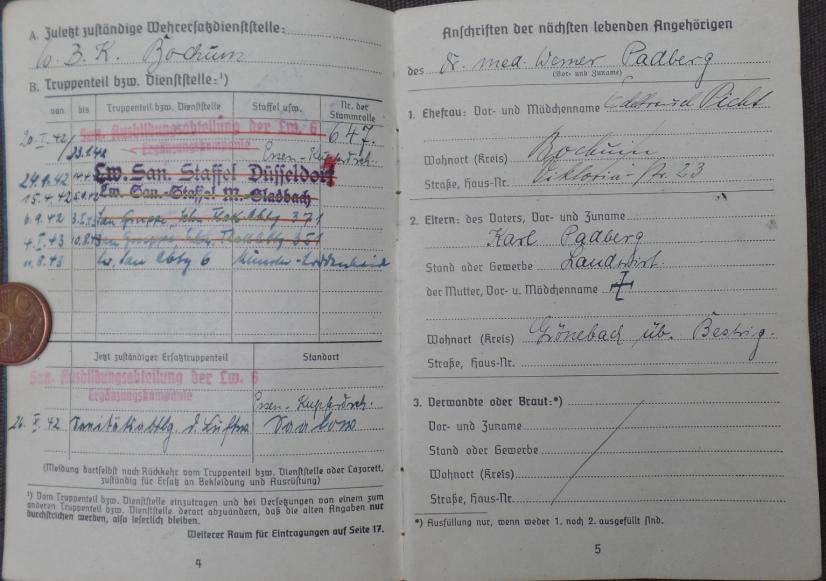 A. Zuletzt zuständige Wehrersatzdienststelle:
W. B. K. Bochum
B. Truppenteil bzw. Dienststelle:¹)
von bis Truppenteil bzw. Dienststelle Staffel usw. Nr. der Stammrolle
San. Ausbildungsabteilung der Lw. 6 647.
Ergänzungskompanie
Lw. San. Staffel Düsseldorf
15.4.42 Lw. San.-Staffel M.-Gladbach
6.9.42
4.I.43
11.8.43 Lw. San Abtg 6 Münster-
Jetzt zuständiger Ersatztruppenteil Standort
San. Ausbildungsabteilung der Lw. 6
Ergänzungskompanie Essen-Kupferdreh.
42 Sanitätsabtlg. d. Luftw. Saalow
(Meldung dortselbst nach Rückkehr vom Truppenteil bzw. Dienststelle oder Lazarett,
zuständig für Ersatz an Bekleidung und Ausrüstung)
¹) Vom Truppenteil bzw. Dienststelle einzutragen und bei Versetzungen von einem zum
anderen Truppenteil bzw. Dienststelle derart abzuändern, daß die alten Angaben nur
durchstrichen werden, also leserlich bleiben.
Weiterer Raum für Eintragungen auf Seite 17.
4
Anschriften der nächsten lebenden Angehörigen
des Dr. med. Werner Padberg
(Vor- und Zuname)
1. Ehefrau: Vor- und Mädchenname Picht
Wohnort (Kreis) Bochum
Straße, Haus-Nr. Viktoria-Str. 23
2. Eltern: des Vaters, Vor- und Zuname
Karl Padberg
Stand oder Gewerbe Landwirt.
der Mutter, Vor- u. Mädchenname
Wohnort (Kreis) Grönebach üb. Bestwig.
Straße, Haus-Nr.
3. Verwandte oder Braut:*)
Vor- und Zuname
Stand oder Gewerbe
Wohnort (Kreis)
Straße, Haus-Nr.
*) Ausfüllung nur, wenn weder 1. noch 2. ausgefüllt sind.
5